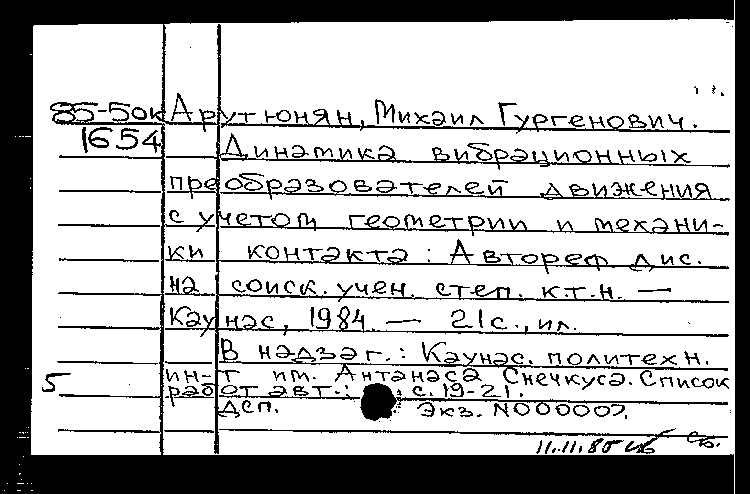 85-5ок Арутюнян, Михаил Гургенович.
1654 Динамика вибрационных
преобразователей движения
с учетом геометрии и механи-
ки контакта: Автореф. дис.
на соиск. учен. степ. к.т.н. —
Каунас, 1984. — 21с., ил.
В надзаг.: Каунас. политехн.
5 ин-т им. Антанаса Снечкуса. Список
работ авт.: с. 19-21.
ДСП. Экз. N000007.
11.11.85